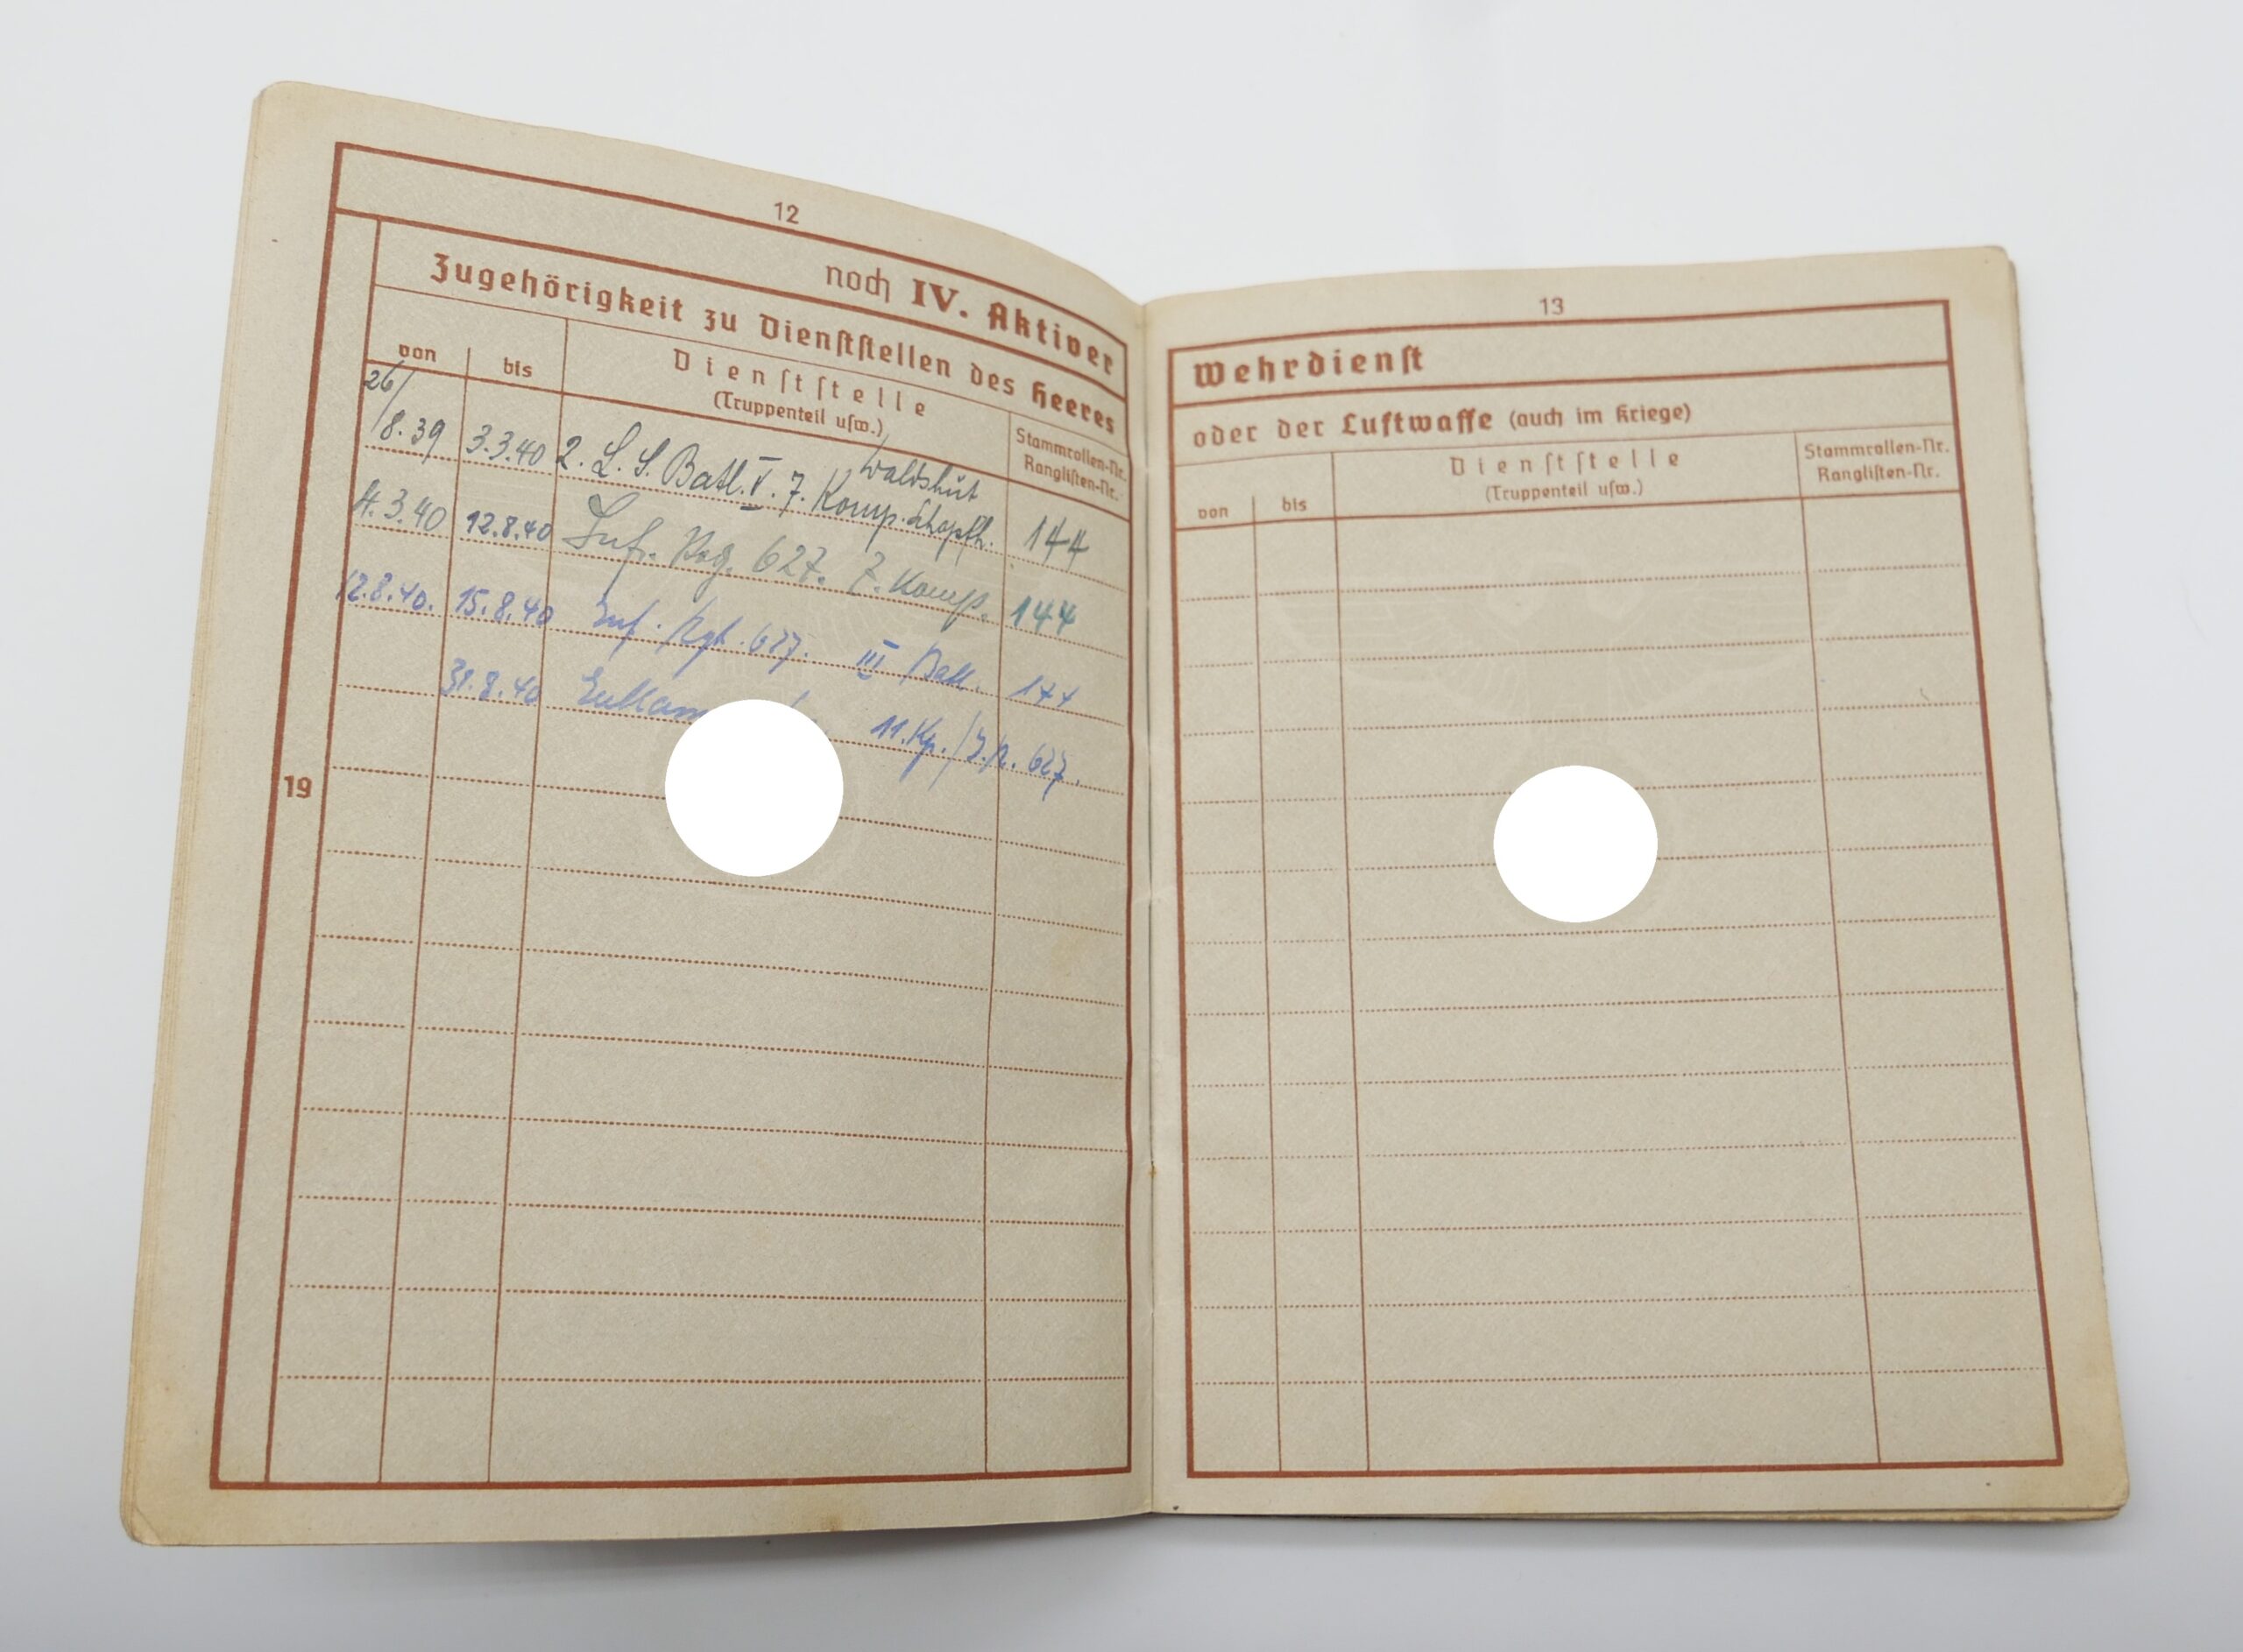 12
noch IV. Aktiver
Zugehörigkeit zu Dienststellen des Heeres
von
bis
Dienststelle
(Truppenteil usw.)
Stammrollen-Nr.
Ranglisten-Nr.
26/
8.39 3.3.40 2. L. S. Batl. V. 7. Komp. Waldshut 144
4.3.40 12.8.40 Inf. Reg. 627. 7. Komp. 144
12.8.40. 15.8.40 Inf. Rgt. 627. III Batl. 144
31.8.40 11.Kp./J.R. 627.
19
13
Wehrdienst
oder der Luftwaffe (auch im Kriege)
von
bis
Dienststelle
(Truppenteil usw.)
Stammrollen-Nr.
Ranglisten-Nr.